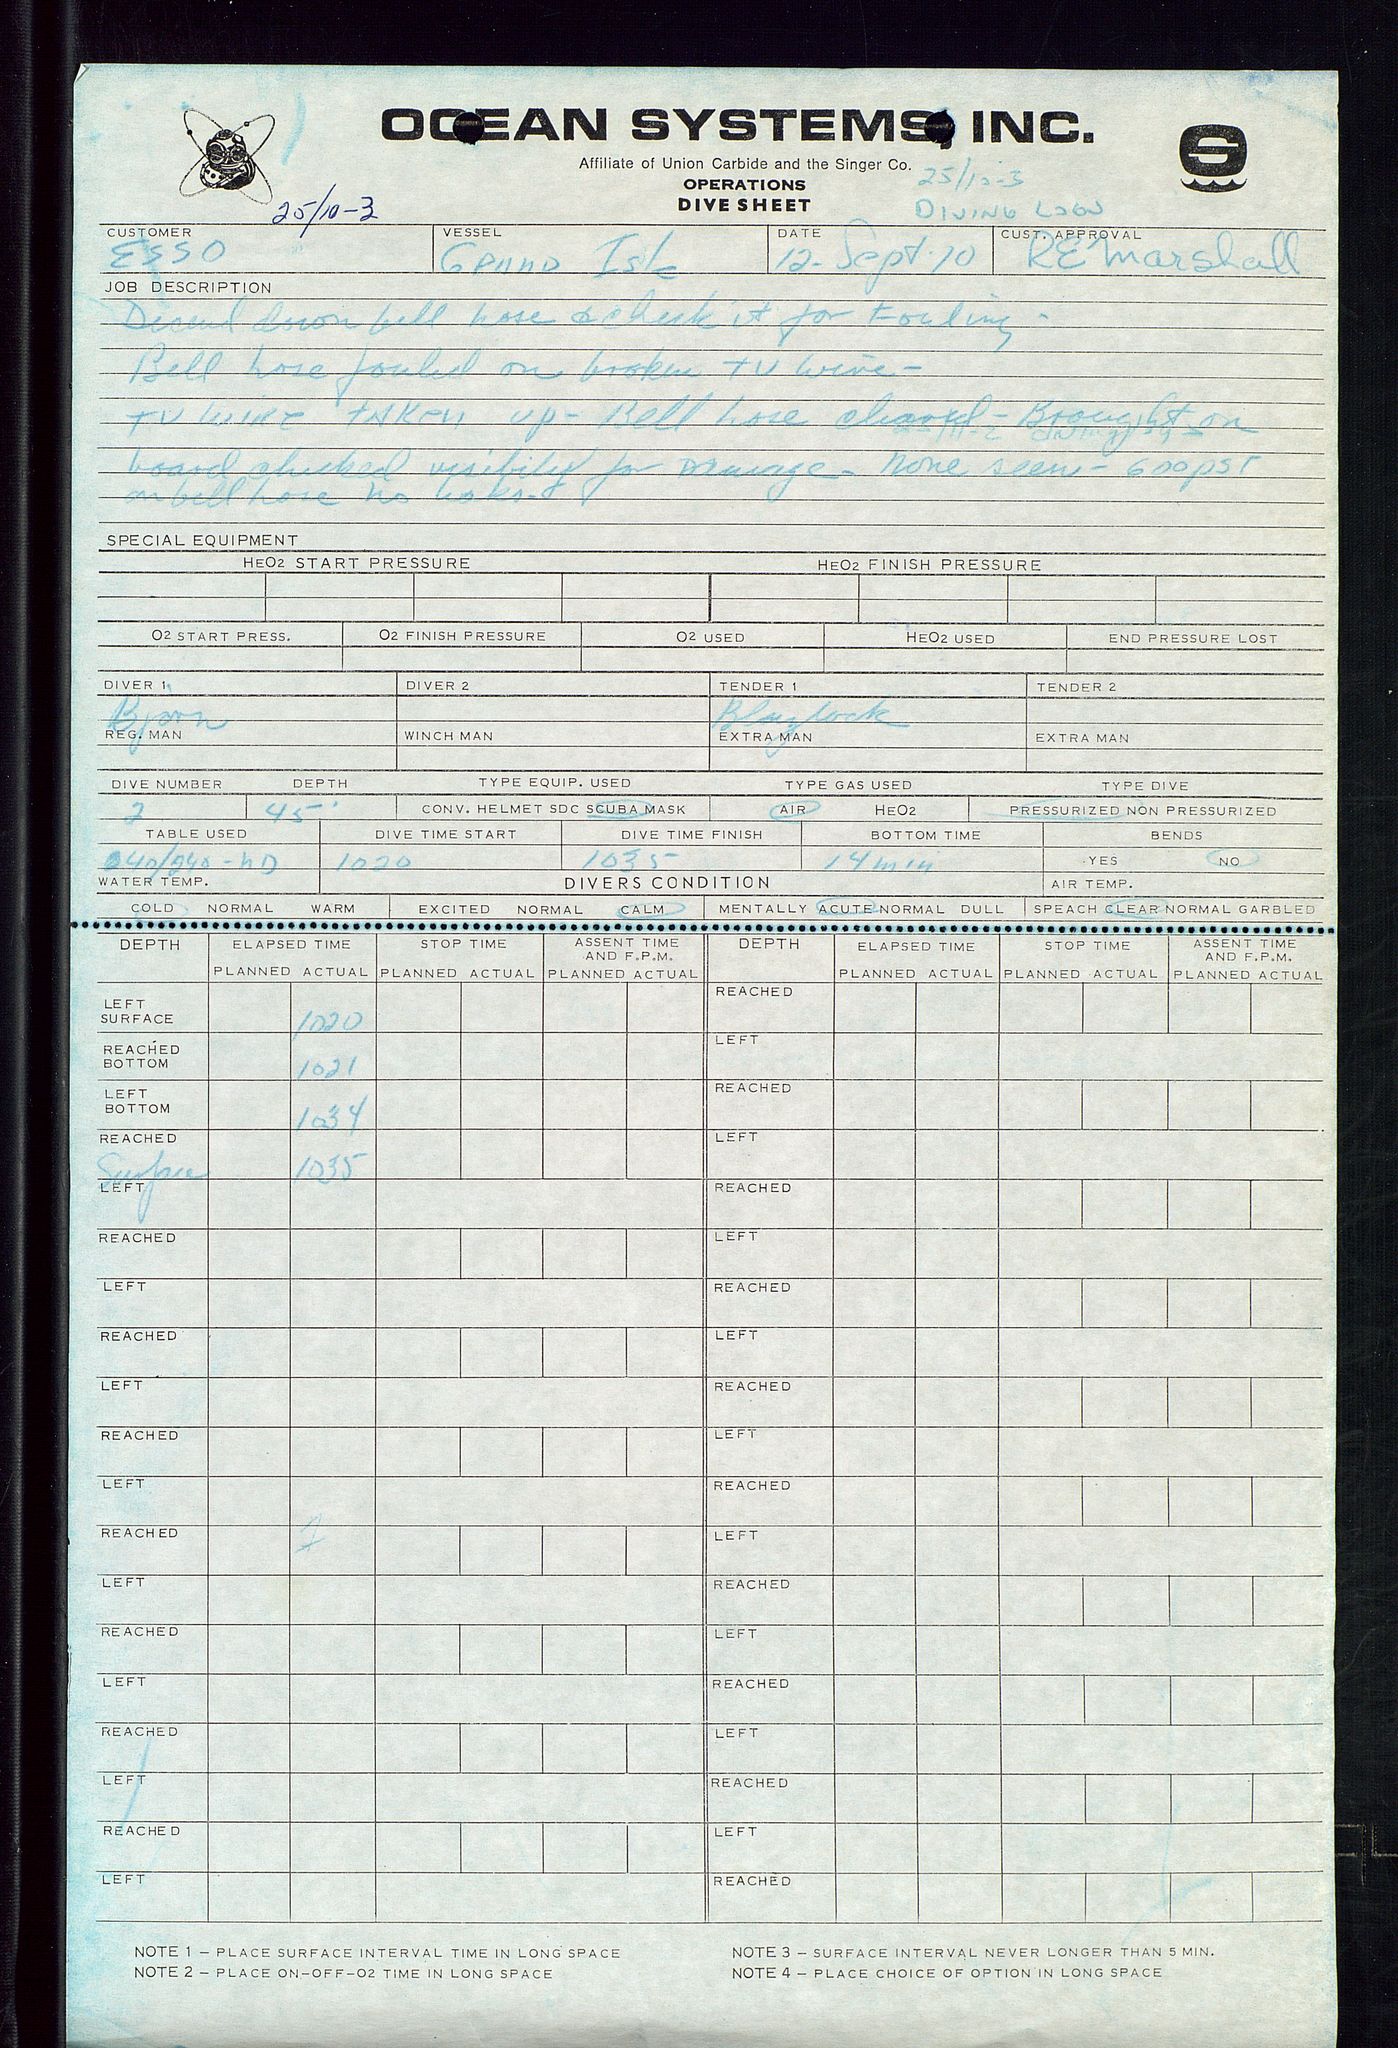 OCEAN SYSTEMS, INC.
Affiliate of Union Carbide and the Singer Co.
OPERATIONS
DIVE SHEET
25/10-3
25/10-3
DIVING LOGS
CUSTOMER VESSEL DATE CUST. APPROVAL
ESSO Grand Isle 12 Sept 70 RE Marshall
JOB DESCRIPTION
Decend down bell hose & check it for Fouling -
Bell hose fouled on broken TV wire -
TV WIRE TAKEN up - Bell hose cleared - Brought on
board checked visibility for Damage - None seen - 600 psi
on bell hose no leaks.
SPECIAL EQUIPMENT
HEO2 START PRESSURE HEO2 FINISH PRESSURE
O2 START PRESS. O2 FINISH PRESSURE O2 USED HEO2 USED END PRESSURE LOST
DIVER 1 DIVER 2 TENDER 1 TENDER 2
Bjorn Blaylock
REG. MAN WINCH MAN EXTRA MAN EXTRA MAN
DIVE NUMBER DEPTH TYPE EQUIP. USED TYPE GAS USED TYPE DIVE
2 45' CONV. HELMET SDC SCUBA MASK AIR HEO2 PRESSURIZED NON PRESSURIZED
TABLE USED DIVE TIME START DIVE TIME FINISH BOTTOM TIME BENDS
240/240-ND 1020 1035 14 min YES NO
WATER TEMP. DIVERS CONDITION AIR TEMP.
COLD NORMAL WARM EXCITED NORMAL CALM MENTALLY ACUTE NORMAL DULL SPEACH CLEAR NORMAL GARBLED
DEPTH ELAPSED TIME STOP TIME ASSENT TIME AND F.P.M. DEPTH ELAPSED TIME STOP TIME ASSENT TIME AND F.P.M.
PLANNED ACTUAL PLANNED ACTUAL PLANNED ACTUAL PLANNED ACTUAL PLANNED ACTUAL PLANNED ACTUAL
LEFT SURFACE 1020 REACHED
REACHED BOTTOM 1021 LEFT
LEFT BOTTOM 1034 REACHED
REACHED Surface 1035 LEFT
LEFT REACHED
REACHED LEFT
LEFT REACHED
REACHED LEFT
LEFT REACHED
REACHED LEFT
LEFT REACHED
REACHED LEFT
LEFT REACHED
REACHED LEFT
LEFT REACHED
REACHED LEFT
LEFT REACHED
REACHED LEFT
LEFT REACHED
NOTE 1 – PLACE SURFACE INTERVAL TIME IN LONG SPACE NOTE 3 – SURFACE INTERVAL NEVER LONGER THAN 5 MIN.
NOTE 2 – PLACE ON-OFF-O2 TIME IN LONG SPACE NOTE 4 – PLACE CHOICE OF OPTION IN LONG SPACE